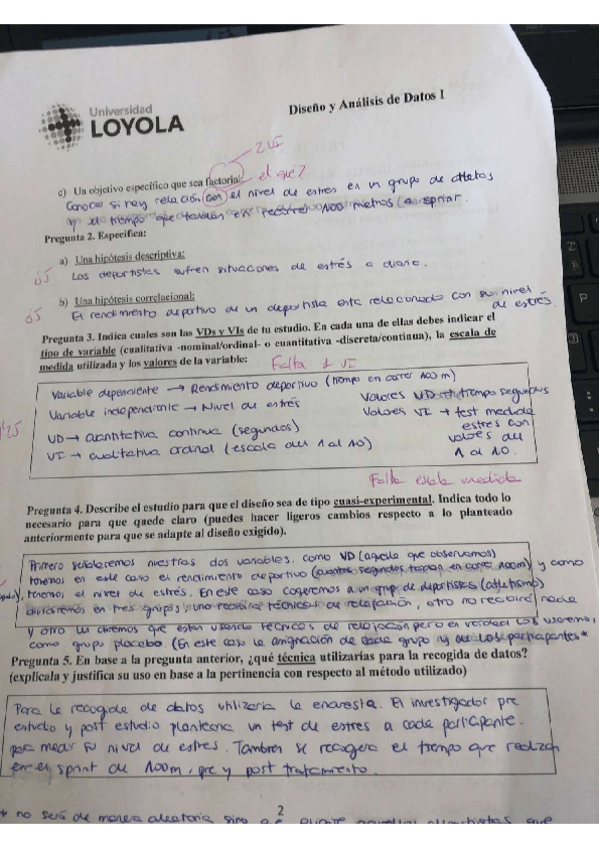 Universidad
LOYOLA
Diseño y Análisis de Datos I
2 VI
c) Un objetivo específico que sea factorial: el que?
Conocer si hay relación con el nivel de estres en un grupo de atletas
y el tiempo que tardan en recorrer 100 metros (a sprint.
Pregunta 2. Especifica:
a) Una hipótesis descriptiva:
Los deportistas sufren situaciones de estrés a diario.
b) Una hipótesis correlacional:
El rendimiento deportivo de un deportista esta relacionado con su nivel
de estrés.
Pregunta 3. Indica cuales son las VDs y VIs de tu estudio. En cada una de ellas debes indicar el
tipo de variable (cualitativa -nominal/ordinal- o cuantitativa -discreta/continua), la escala de
medida utilizada y los valores de la variable:
Falta 1 VI
Variable dependiente → Rendimiento deportivo (tiempo en correr 100m)
Variable independiente → Nivel de estrés
VD → cuantitativa continua (segundos)
VI → cualitativa ordinal (escala del 1 al 10)
Valores VD → tiempo segundos
Valores VI → test medida
estres con
valores del
1 al 10.
Falta escala medida
Pregunta 4. Describe el estudio para que el diseño sea de tipo cuasi-experimental. Indica todo lo
necesario para que quede claro (puedes hacer ligeros cambios respecto a lo planteado
anteriormente para que se adapte al diseño exigido).
Primero señalaremos nuestras dos variables. como VD (aquello que observamos)
tenemos en este caso el rendimiento deportivo (cuantos segundos tardan en correr 100m) y como
tenemos el nivel de estrés. En este caso cogeremos a un grupo de deportistas (atletismo)
dividiremos en tres grupos: uno recibirá técnicas de relajación, otro no recibirá nada
y otro les diremos que estan usando técnicas de relajación pero en verdad
como grupo placebo (En este caso la asignación de cada grupo y de los participantes*
Pregunta 5. En base a la pregunta anterior, ¿qué técnica utilizarías para la recogida de datos?
(explicala y justifica su uso en base a la pertinencia con respecto al método utilizado)
Para la recogida de datos utilizaria la encuesta. El investigador pre
estudio y post estudio plantearia un test de estres a cada participante.
para medir su nivel de estres. Tambien se recogera el tiempo que realizan
en el sprint de 100m, pre y post tratamiento.
2
* no será de manera aleatoria sino que